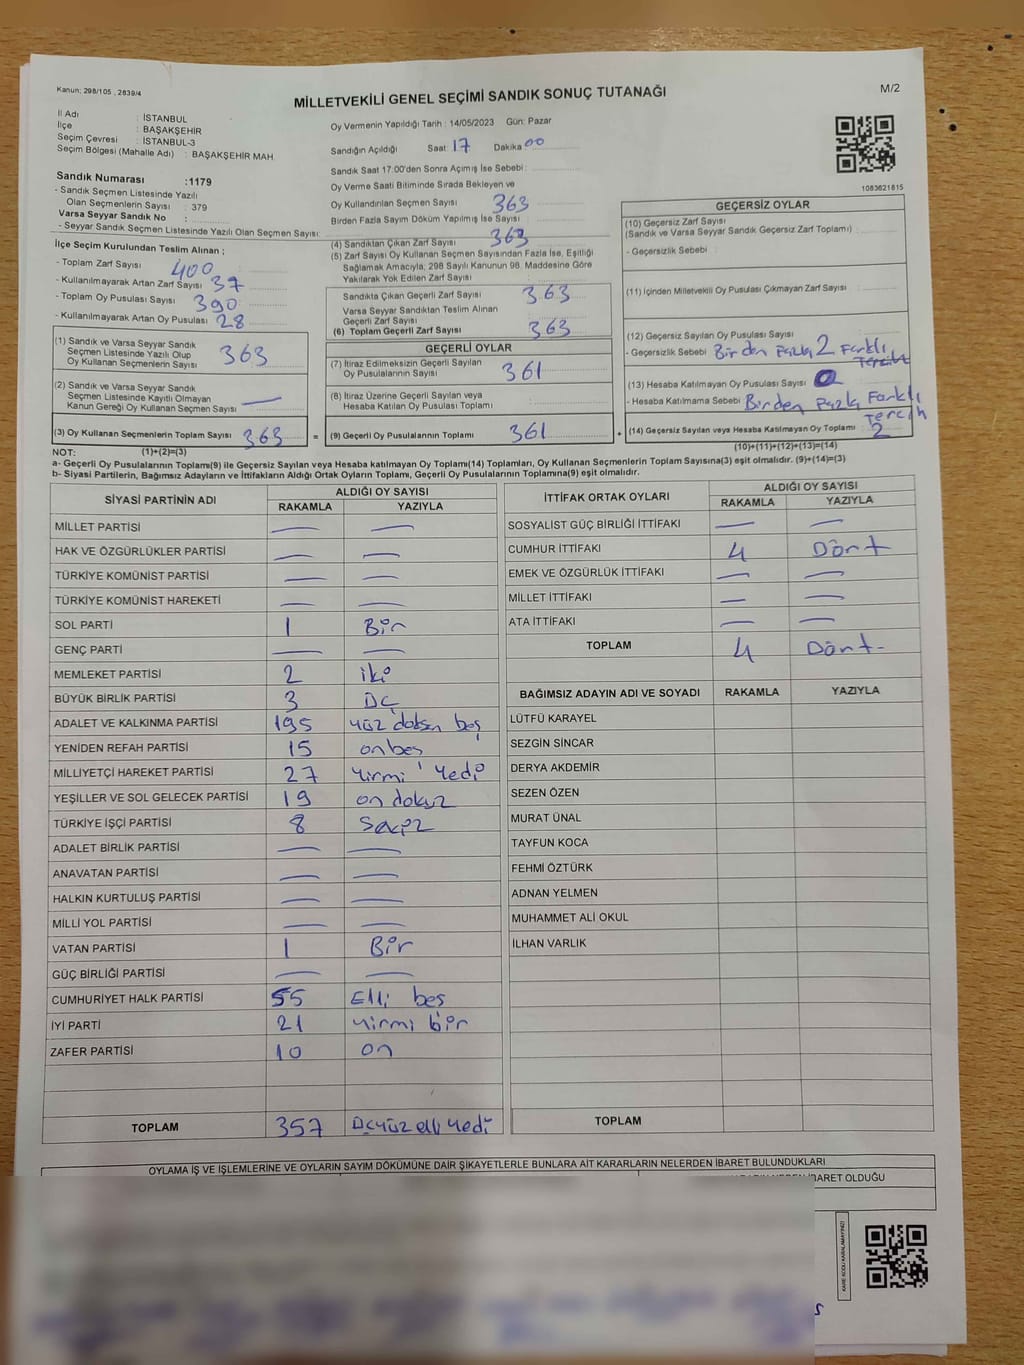 Kanun: 298/105 , 2839/4
MİLLETVEKİLİ GENEL SEÇİMİ SANDIK SONUÇ TUTANAĞI
M/2
İl Adı : İSTANBUL
İlçe : BAŞAKŞEHİR
Seçim Çevresi : İSTANBUL-3
Seçim Bölgesi (Mahalle Adı) : BAŞAKŞEHİR MAH.
Sandık Numarası :1179
- Sandık Seçmen Listesinde Yazılı
Olan Seçmenlerin Sayısı : 379
Varsa Seyyar Sandık No :
- Seyyar Sandık Seçmen Listesinde Yazılı Olan Seçmen Sayısı:
İlçe Seçim Kurulundan Teslim Alınan ;
- Toplam Zarf Sayısı : 400
- Kullanılmayarak Artan Zarf Sayısı : 37
- Toplam Oy Pusulası Sayısı : 390
- Kullanılmayarak Artan Oy Pusulası : 28
(1) Sandık ve Varsa Seyyar Sandık
Seçmen Listesinde Yazılı Olup
Oy Kullanan Seçmenlerin Sayısı : 363
(2) Sandık ve Varsa Seyyar Sandık
Seçmen Listesinde Kayıtlı Olmayan
Kanun Gereği Oy Kullanan Seçmen Sayısı : —
(3) Oy Kullanan Seçmenlerin Toplam Sayısı : 363
Oy Vermenin Yapıldığı Tarih : 14/05/2023 Gün: Pazar
Sandığın Açıldığı Saat : 17 Dakika : 00
Sandık Saat 17:00'den Sonra Açılmış İse Sebebi :
Oy Verme Saati Bitiminde Sırada Bekleyen ve
Oy Kullandırılan Seçmen Sayısı : 363
Birden Fazla Sayım Döküm Yapılmış İse Sayısı :
(4) Sandıktan Çıkan Zarf Sayısı : 363
(5) Zarf Sayısı Oy Kullanan Seçmen Sayısından Fazla İse, Eşitliği
Sağlamak Amacıyla, 298 Sayılı Kanunun 98. Maddesine Göre
Yakılarak Yok Edilen Zarf Sayısı :
Sandıkta Çıkan Geçerli Zarf Sayısı : 363
Varsa Seyyar Sandıktan Teslim Alınan
Geçerli Zarf Sayısı :
(6) Toplam Geçerli Zarf Sayısı : 363
GEÇERLİ OYLAR
(7) İtiraz Edilmeksizin Geçerli Sayılan
Oy Pusulalarının Sayısı : 361
(8) İtiraz Üzerine Geçerli Sayılan veya
Hesaba Katılan Oy Pusulası Toplamı :
= (9) Geçerli Oy Pusulalarının Toplamı : 361
1083621815
GEÇERSİZ OYLAR
(10) Geçersiz Zarf Sayısı
(Sandık ve Varsa Seyyar Sandık Geçersiz Zarf Toplamı) :
- Geçersizlik Sebebi :
(11) İçinden Milletvekili Oy Pusulası Çıkmayan Zarf Sayısı :
(12) Geçersiz Sayılan Oy Pusulası Sayısı : 2
- Geçersizlik Sebebi : Birden Fazla Farklı
Tercih
(13) Hesaba Katılmayan Oy Pusulası Sayısı :
- Hesaba Katılmama Sebebi : Birden Fazla Farklı
Tercih
+ (14) Geçersiz Sayılan veya Hesaba Katılmayan Oy Toplamı : 2
NOT: (1)+(2)=(3)
(10)+(11)+(12)+(13)=(14)
a- Geçerli Oy Pusulalarının Toplamı(9) ile Geçersiz Sayılan veya Hesaba katılmayan Oy Toplamı(14) Toplamları, Oy Kullanan Seçmenlerin Toplam Sayısına(3) eşit olmalıdır. (9)+(14)=(3)
b- Siyasi Partilerin, Bağımsız Adayların ve İttifakların Aldığı Ortak Oyların Toplamı, Geçerli Oy Pusulalarının Toplamına(9) eşit olmalıdır.
SİYASİ PARTİNİN ADI
ALDIĞI OY SAYISI
RAKAMLA YAZIYLA
MİLLET PARTİSİ — —
HAK VE ÖZGÜRLÜKLER PARTİSİ — —
TÜRKİYE KOMÜNİST PARTİSİ — —
TÜRKİYE KOMÜNİST HAREKETİ — —
SOL PARTİ 1 Bir
GENÇ PARTİ — —
MEMLEKET PARTİSİ 2 iki
BÜYÜK BİRLİK PARTİSİ 3 Üç
ADALET VE KALKINMA PARTİSİ 195 yüz doksan beş
YENİDEN REFAH PARTİSİ 15 onbeş
MİLLİYETÇİ HAREKET PARTİSİ 27 Yirmi Yedi
YEŞİLLER VE SOL GELECEK PARTİSİ 19 on dokuz
TÜRKİYE İŞÇİ PARTİSİ 8 Sekiz
ADALET BİRLİK PARTİSİ — —
ANAVATAN PARTİSİ — —
HALKIN KURTULUŞ PARTİSİ — —
MİLLİ YOL PARTİSİ — —
VATAN PARTİSİ 1 Bir
GÜÇ BİRLİĞİ PARTİSİ — —
CUMHURİYET HALK PARTİSİ 55 Elli beş
İYİ PARTİ 21 yirmi bir
ZAFER PARTİSİ 10 on
TOPLAM 357 Üçyüz elli yedi
İTTİFAK ORTAK OYLARI
ALDIĞI OY SAYISI
RAKAMLA YAZIYLA
SOSYALİST GÜÇ BİRLİĞİ İTTİFAKI — —
CUMHUR İTTİFAKI 4 Dört
EMEK VE ÖZGÜRLÜK İTTİFAKI — —
MİLLET İTTİFAKI — —
ATA İTTİFAKI — —
TOPLAM 4 Dört-
BAĞIMSIZ ADAYIN ADI VE SOYADI RAKAMLA YAZIYLA
LÜTFÜ KARAYEL
SEZGİN SİNCAR
DERYA AKDEMİR
SEZEN ÖZEN
MURAT ÜNAL
TAYFUN KOCA
FEHMİ ÖZTÜRK
ADNAN YELMEN
MUHAMMET ALİ OKUL
İLHAN VARLIK
TOPLAM
OYLAMA İŞ VE İŞLEMLERİNE VE OYLARIN SAYIM DÖKÜMÜNE DAİR ŞİKAYETLERLE BUNLARA AİT KARARLARIN NELERDEN İBARET BULUNDUKLARI
İBARET OLDUĞU
KARE KODU KARALAMAYINIZ!